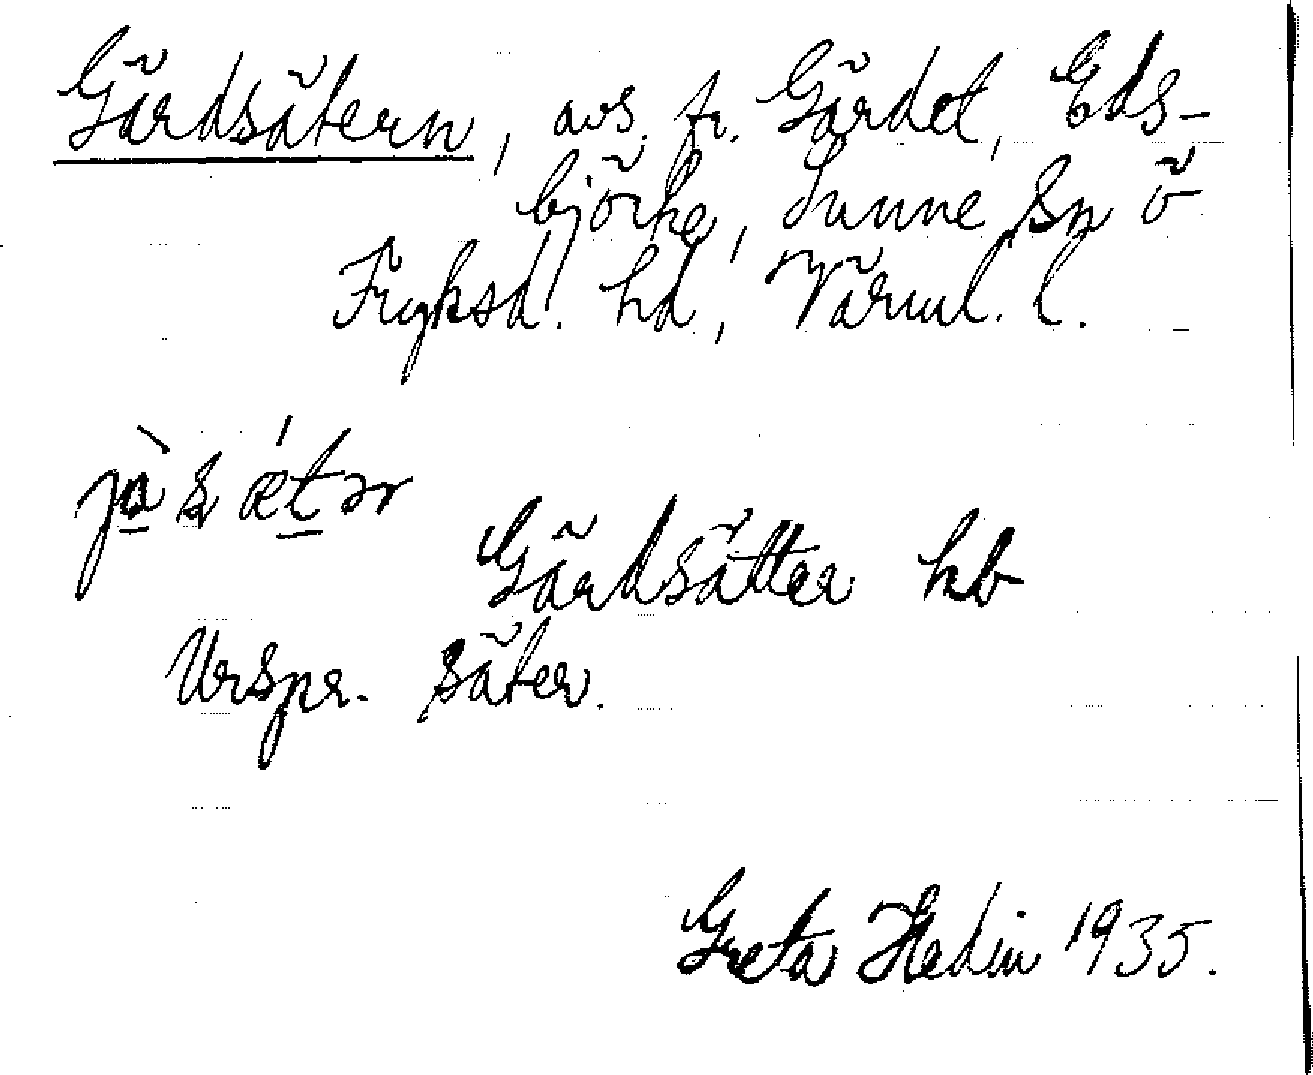 Gärdsätern, avs. fr. Gärdet, Eds-
björke, Sunne sn ö
Fryksd. hd, Värml. l.
jàsǽtər
Gärdsätter hb
Urspr. säter.
Greta Hedin 1935.